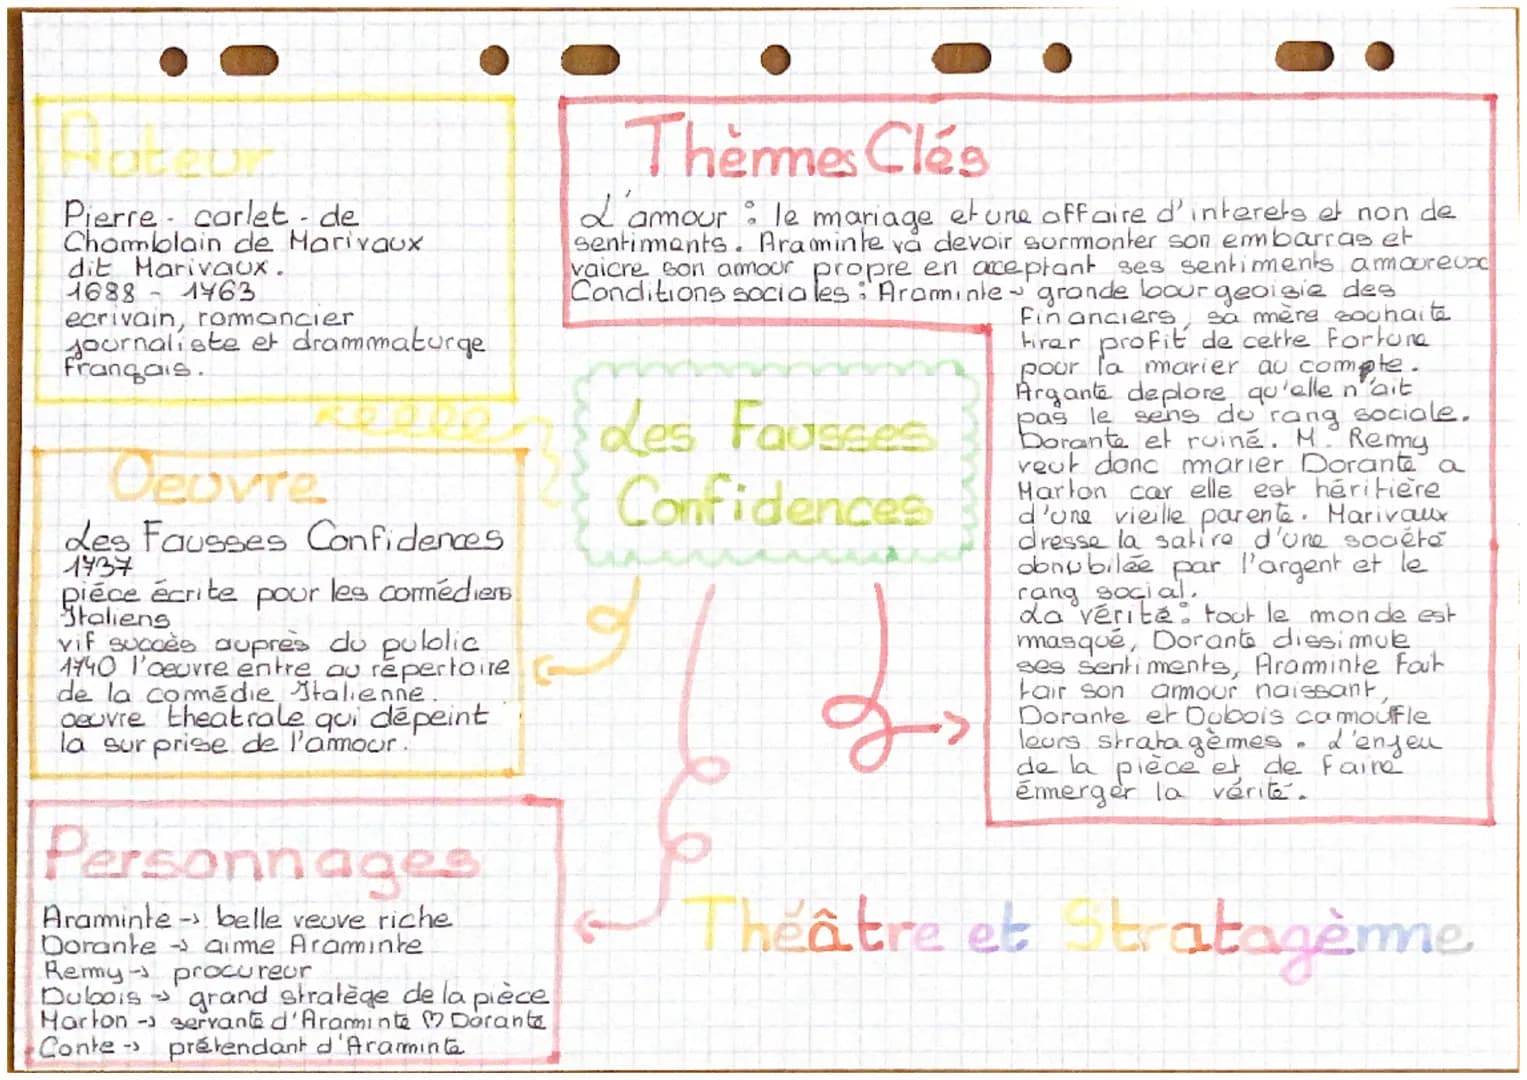 Auteur
Pierre - carlet - de
Chamblain de Marivaux
dit Marivaux.
1688 - 1763
ecrivain, romancier
journaliste et drammaturge
français.
Oeuvre
Les Fausses Confidences
1737
pièce écrite pour les comédiens
Italiens
vif succès auprès du public
1740 l'œuvre entre au répertoire
de la comédie Italienne.
œuvre theatrale qui dépeint
la surprise de l'amour.
Personnages
Araminte -> belle veuve riche
Dorante -> aime Araminte
Remy -> procureur
Dubois -> grand stratège de la pièce
Marton -> servante d'Araminte ♡ Dorante
Conte -> prétendant d'Araminte
Les Fausses
Confidences
Thèmes Clés
L'amour : le mariage et une affaire d'interets et non de
sentiments. Araminte va devoir surmonter son embarras et
vaicre son amour propre en aceptant ses sentiments amoureux
Conditions sociales : Araminte -> grande bourgeoisie des
financiers, sa mère souhaite
tirer profit de cette fortune
pour la marier au compte.
Argante deplore qu'elle n'ait
pas le sens du rang sociale.
Dorante et ruiné. M. Remy
veut donc marier Dorante a
Marton car elle est héritière
d'une vieille parente. Marivaux
dresse la satire d'une société
obnubilée par l'argent et le
rang social.
La vérité : tout le monde est
masqué, Dorante dissimule
ses sentiments, Araminte fait
tair son amour naissant,
Dorante et Dubois camoufle
leurs stratagèmes. L'enjeu
de la pièce et de faire
émerger la vérité.
Théâtre et Stratagème